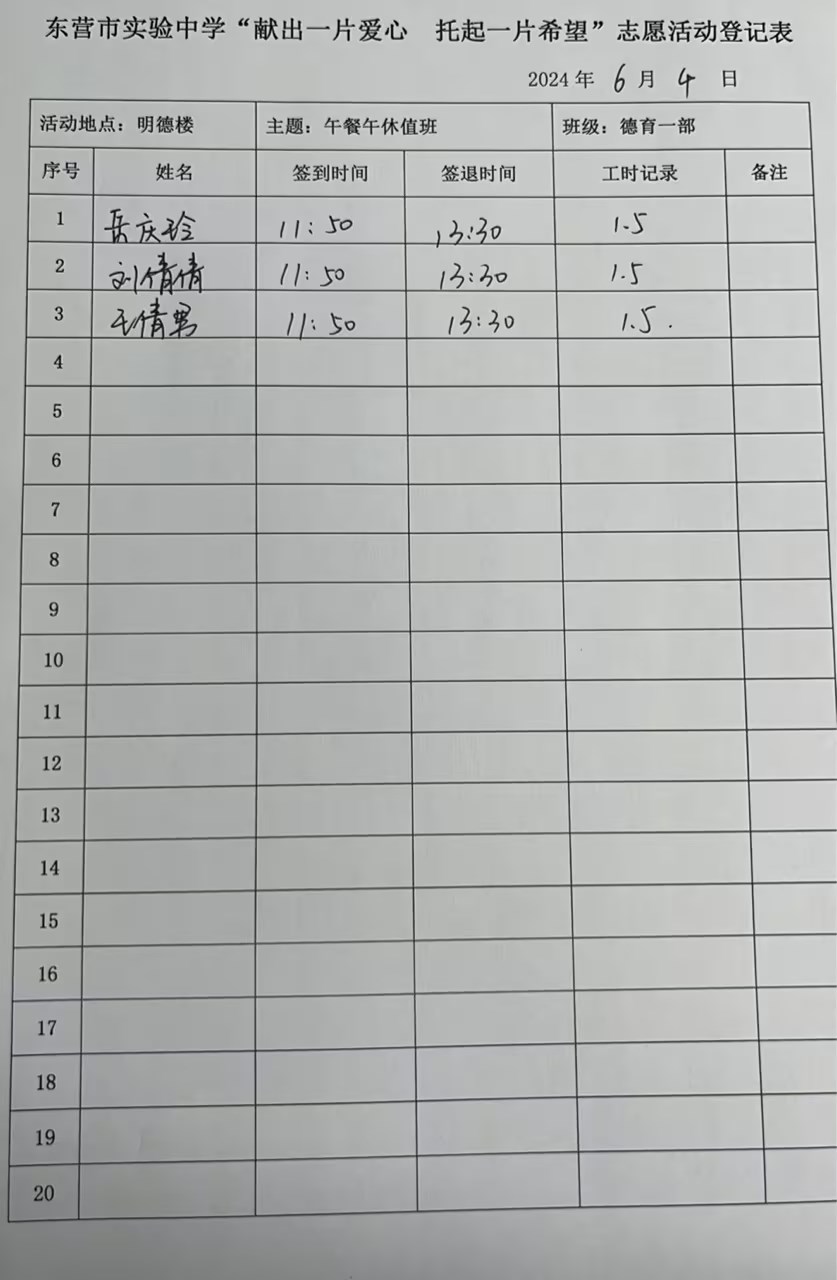 东营市实验中学“献出一片爱心 托起一片希望”志愿活动登记表
2024 年 6 月 4 日
活动地点：明德楼 主题：午餐午休值班 班级：德育一部
序号 姓名 签到时间 签退时间 工时记录 备注
1 岳庆玲 11:50 13:30 1.5
2 刘倩倩 11:50 13:30 1.5
3 王倩男 11:50 13:30 1.5.
4
5
6
7
8
9
10
11
12
13
14
15
16
17
18
19
20